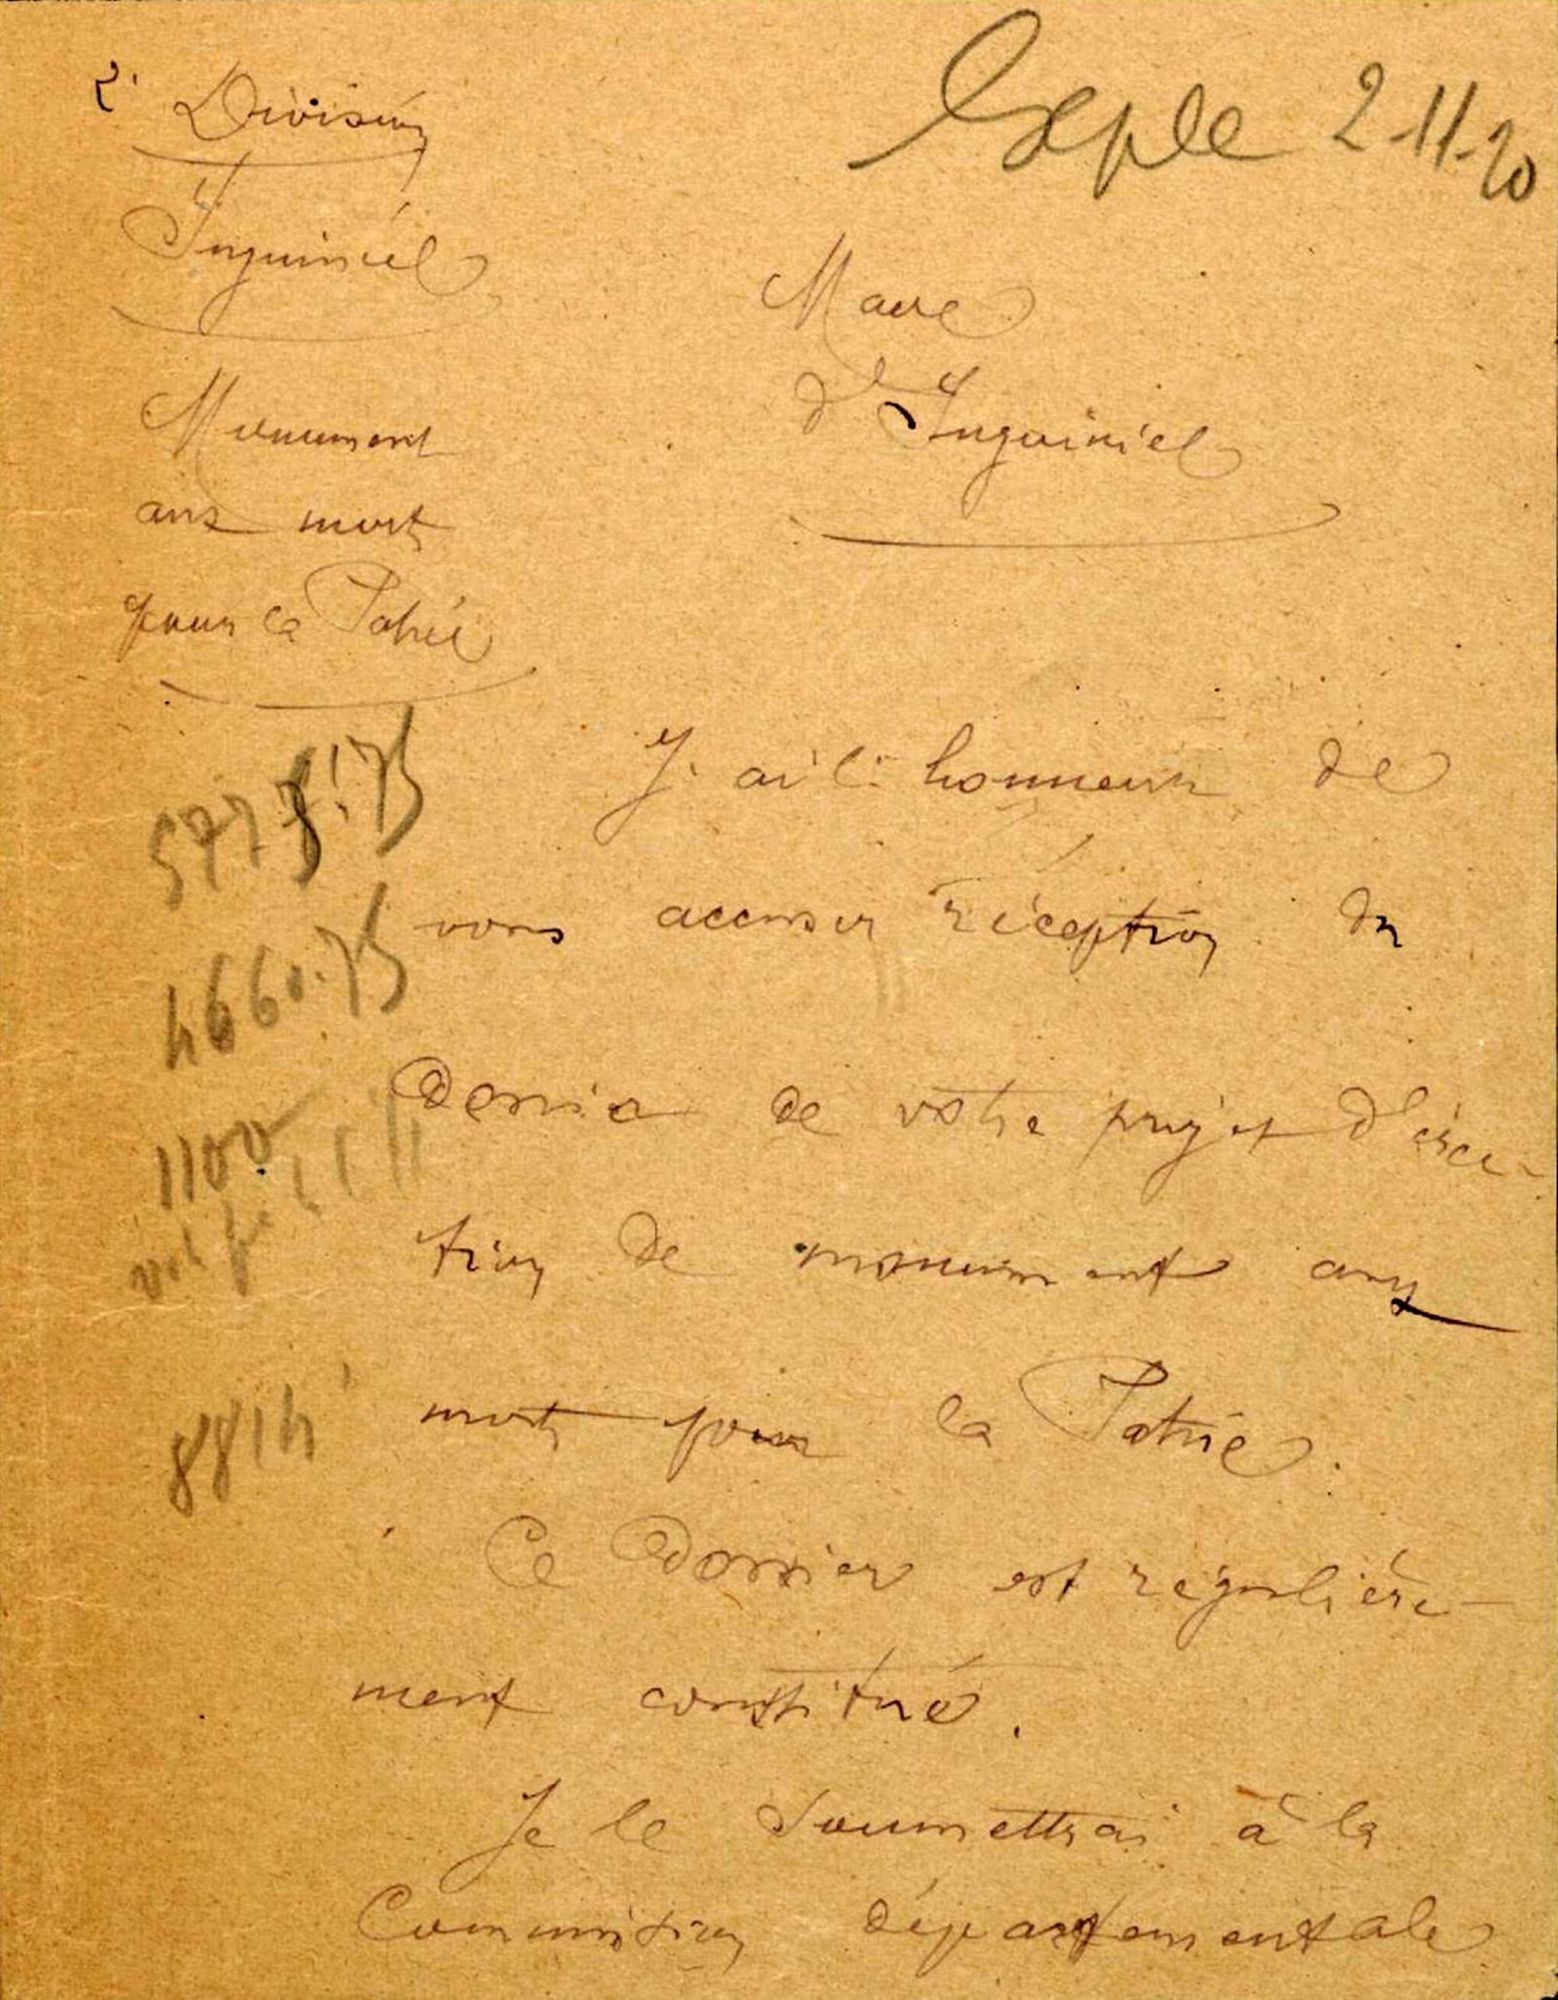 2e Division
Inguiniel
Monument
aux morts
pour la Patrie
Exple 2-11-20
Maire
d'Inguiniel
J'ai l'honneur de
vous accuser réception du
dossier de votre projet d'érec-
tion de monument aux
morts pour la Patrie.
Ce dossier est régulière-
ment constitué.
Je le soumettrai à la
Commission départementale
4660.75
1100
8814